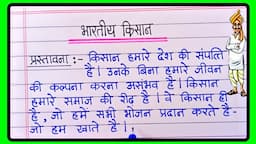 भारतीय किसान
प्रस्तावना :- किसान हमारे देश की संपत्ति
है। उनके बिना हमारे जीवन
की कल्पना करना असंभव है। किसान
हमारे समाज की रीढ़ है। वे किसान ही
है, जो हमें सभी भोजन प्रदान करते है-
जो हम खाते हैं।